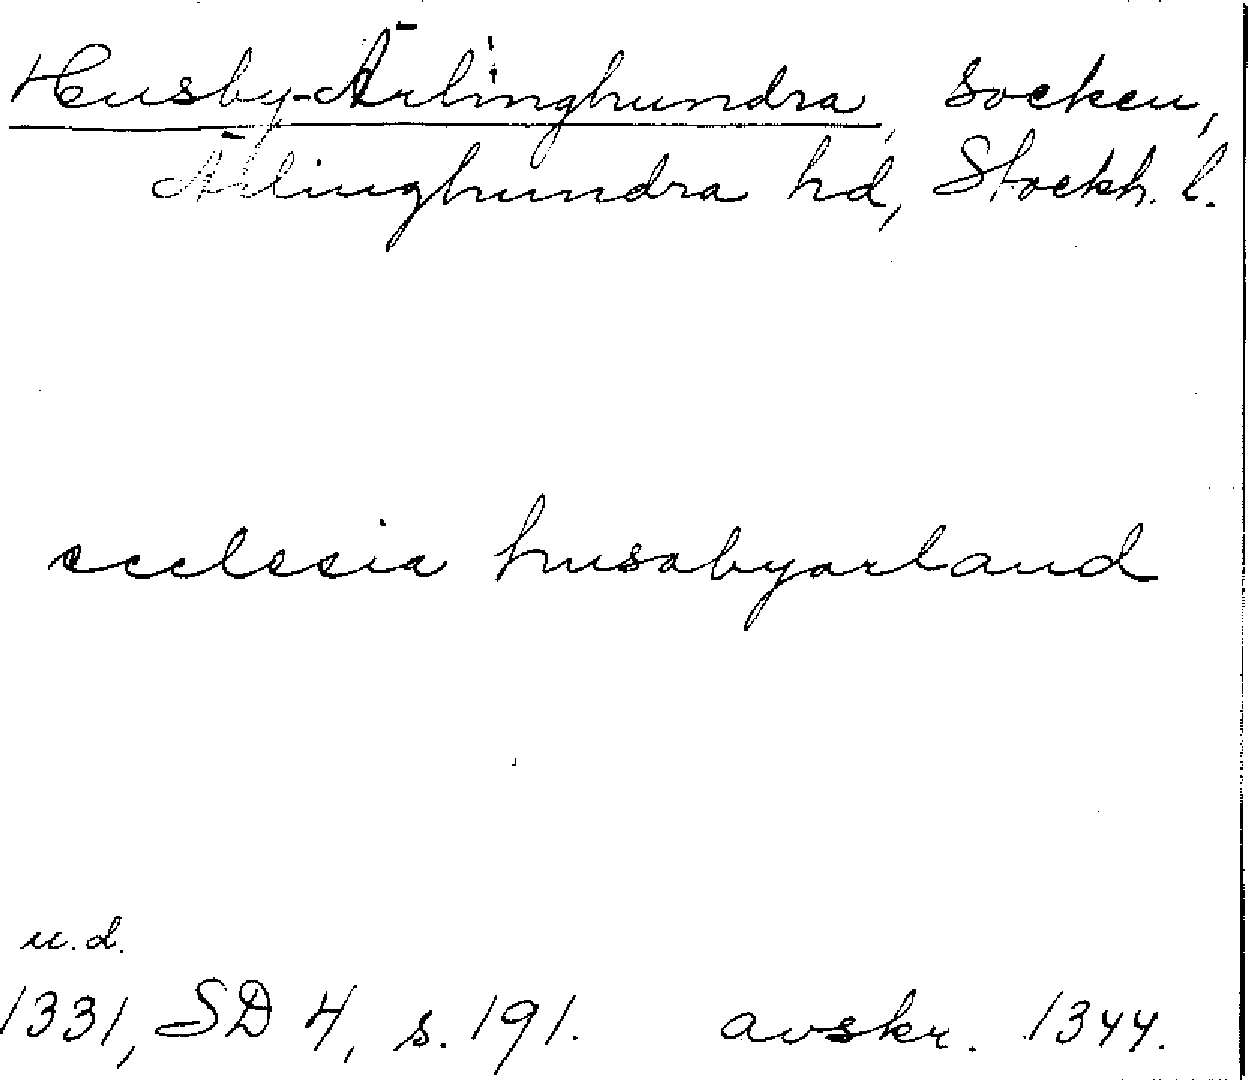 Husby-Ärlinghundra socken,
Ärlinghundra hd, Stockh. l.
ecclesia husabyarland
u.d.
1331, SD 4, s. 191. avskr. 1344.